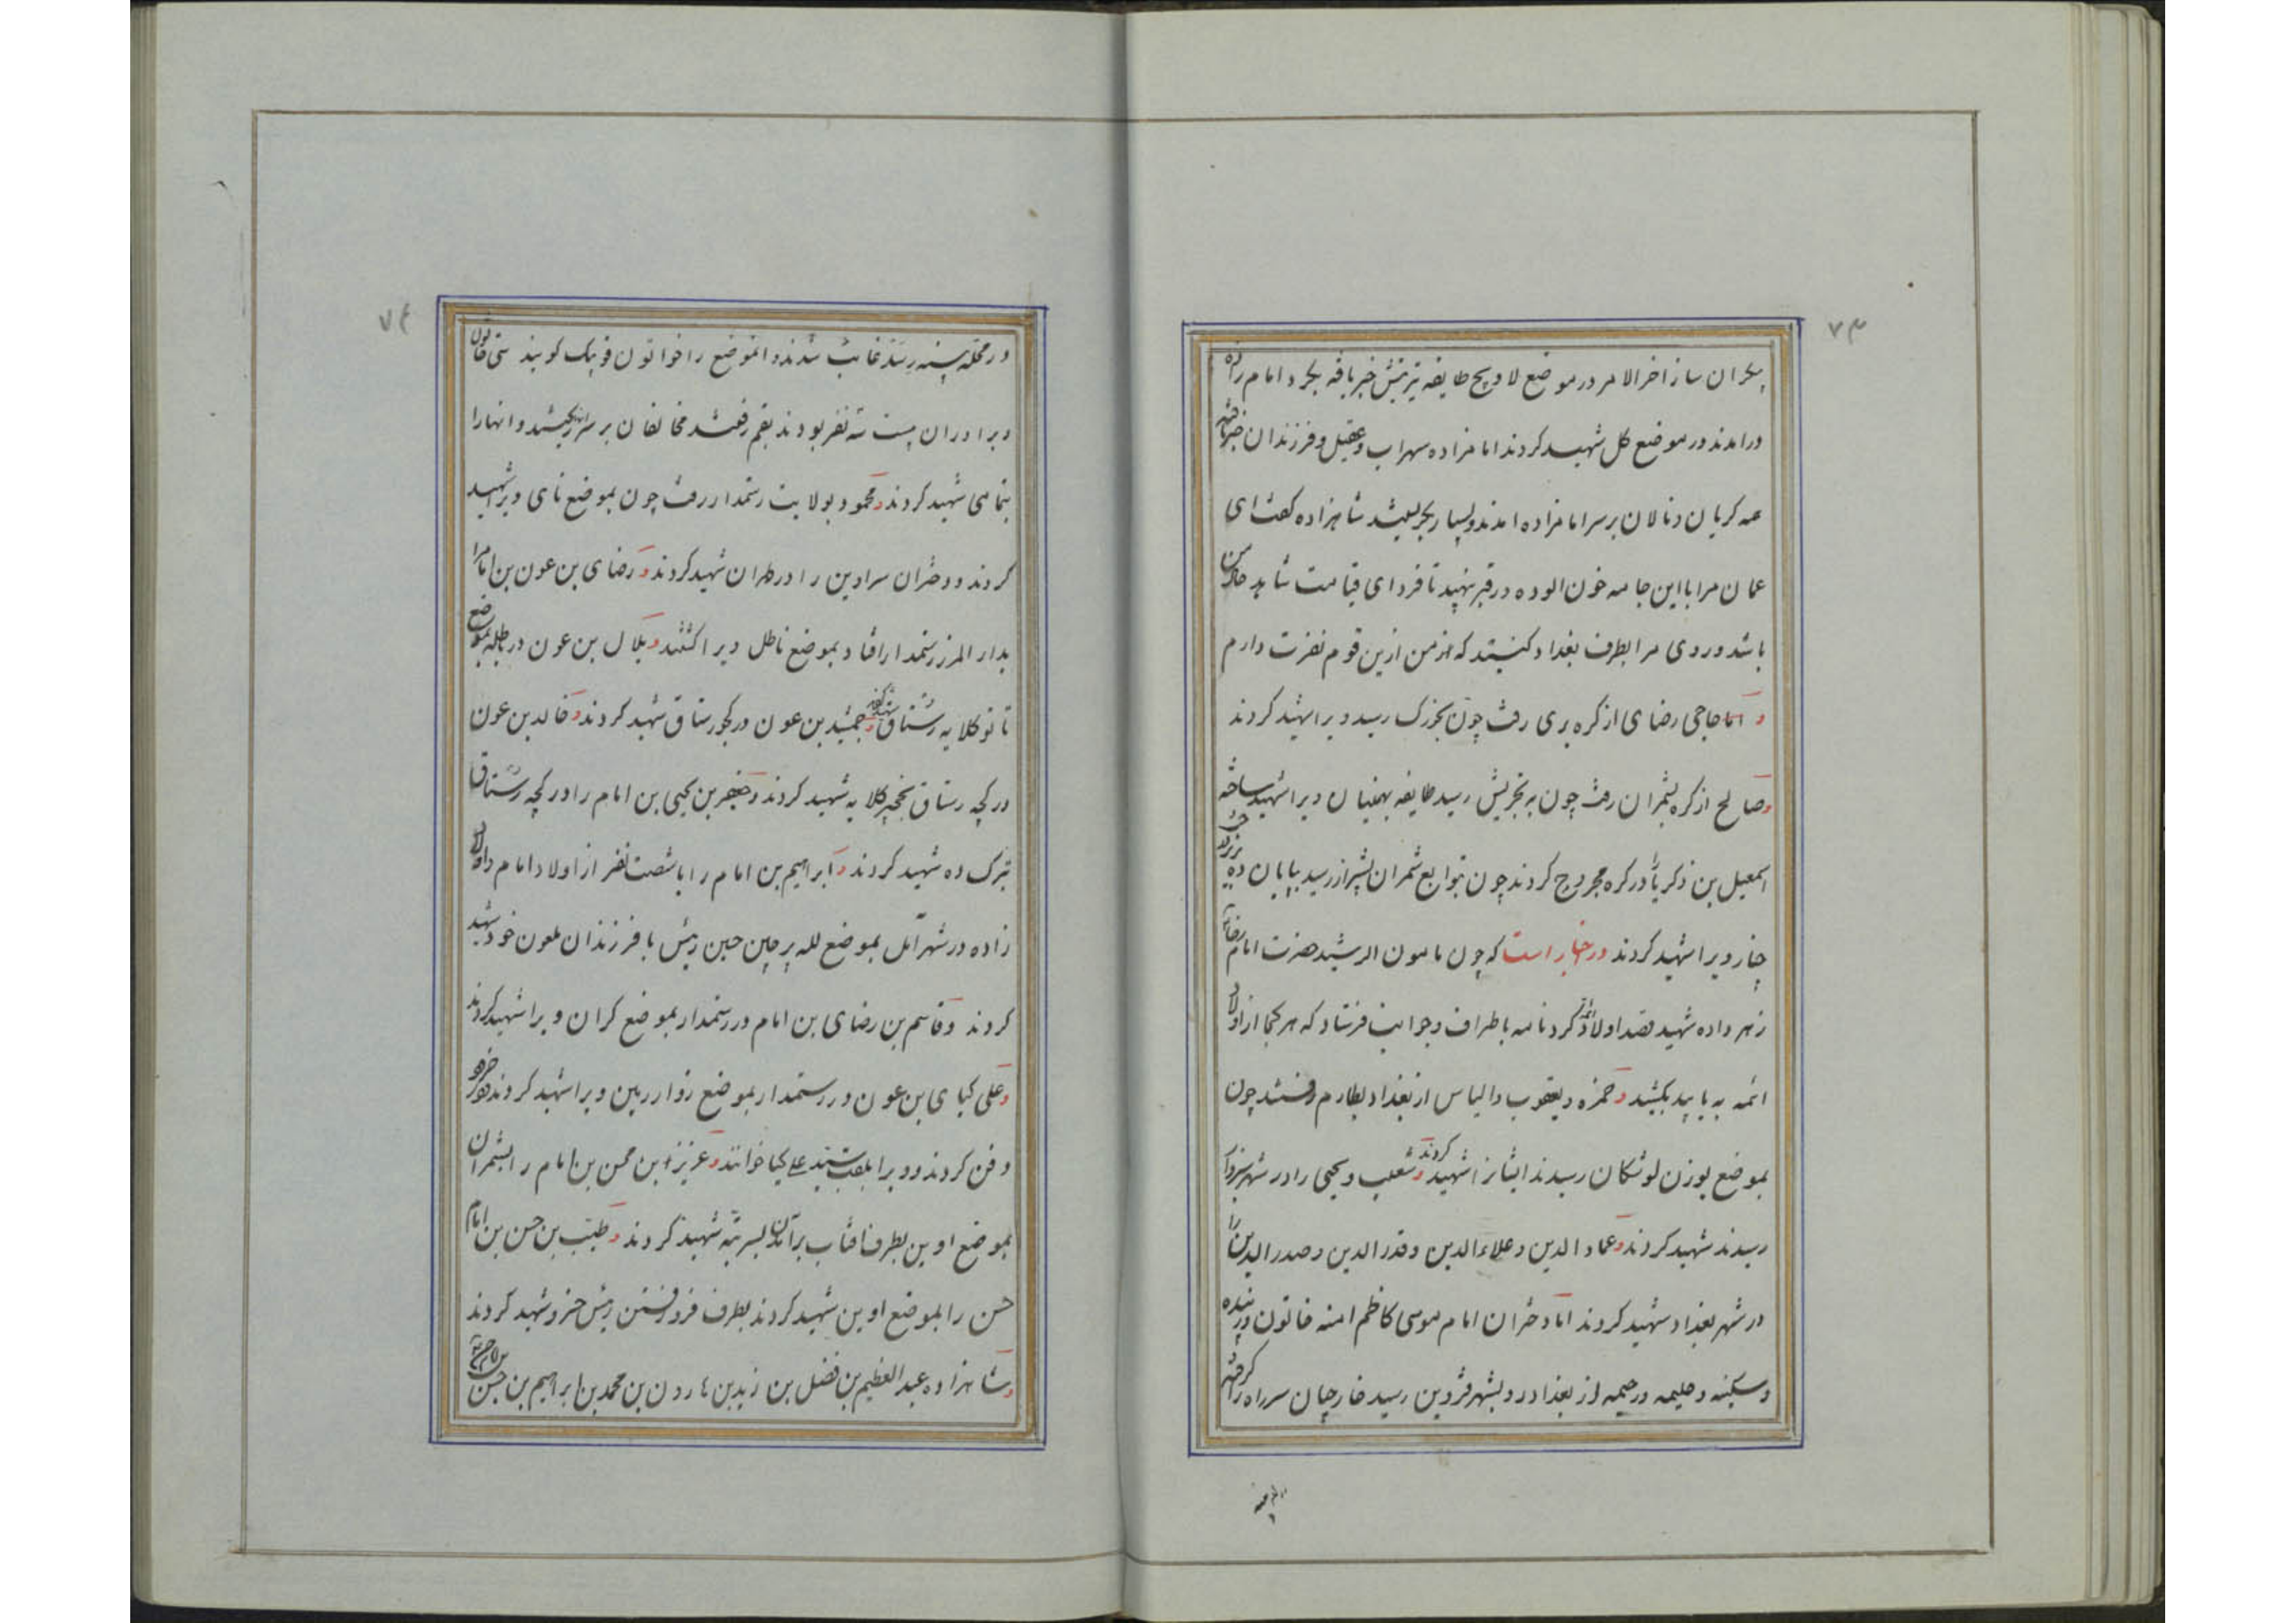 ۷۳
بکران ساز اخر الامر در موضع لاویج طایفه خبر یافه بکرد امام زاده
درامدند در موضع کل شهید کردند امامزاده سهراب وعقیل وفرزندان خبر یافته
همه کریان ونالان برسر امامزاده امدند وبسیار بکریستند شاهزاده کفت ای
عمان مرا بااین جامه خون الوده در قبر نهید تا فردای قیامت شاهد حال من
باشد وروی مرا بطرف بغداد کنیند که من ازین قوم نفرت دارم
و اما حاجی رضای از کره بری رفت چون بخزک رسید ویرا شهید کردند
وصالح از کره بشمران رفت چون به تجریش رسید طایفه بهمنیان ویرا شهید ساخته
اسمعیل بن ذکریا را در کره مجروح کردند چون بتوابع شمران بشیراز رسید بپایان ده
چنار ویرا شهید کردند در خبار است که چون مامون الرشید حضرت امام رضا را
زهر داده شهید قصد اولاد ائمه کرد نامه باطراف وجوانب فرستاد که هر کجا از اولاد
ائمه به یابید بکشید و حمزه ویعقوب والیاس از بغداد بطارم رفتند چون
بموضع یوزن لوشکان رسیدند ایشانرا شهید کردند و شعیب ویحیی را در شهر سبزوار
رسیدند شهید کردند وعماد الدین وعلاء الدین وقدر الدین وصدر الدین را
در شهر بغداد شهید کردند اما دختران امام موسی کاظم امنه خاتون وزبیده
وسکینه وحلیمه ورحیمه از بغداد در دبشهر قزوین رسید خارجیان سر راه را کرفتند
۷۴
در محله رسید غایب شدند وانموضع را خواتون قوپک کویند ستی خاتون
وبرادران بیست نه نفر بودند بقم رفتند مخالفان بر سر ریختند وانهارا
بتمامی شهید کردند ومحمود بولایت رستمدار رفت چون بموضع نای ویرا شهید
کردند ودختران سرادین را در طهران شهید کردند و رضای بن عون بن امام را
بدار المرز رستمدار افتاد بموضع ناطل ویرا کشتند و بلال بن عون در بموضع
تا نوکلایه رستاق شهید کردند وجمشید بن عون در کجور رستاق شهید کردند و خالد بن عون
در کجه رستاق بخچیر کلایه شهید کردند وجعفر بن یحیی بن امام را در کجه رستاق
ترک ده شهید کردند و ابراهیم بن امام را باشصت نفر از اولاد امام واولاد
زاده در شهر آمل بموضع لله پرچین حین رئیس با فرزندان ملعون خود شهید
کردند وقاسم بن رضای بن امام در رستمدار بموضع کران ویرا شهید کردند
وعلی کیای بن عون در رستمدار بموضع زوار ربین ویرا شهید کردند
دفن کردند وویرا بلقب سید علی کیا خوانند وعزیز بن محسن بن امام را بشمران
بموضع اوین بطرف افتاب برآمدن بسر تپه شهید کردند و طیب بن حسن بن امام
حسن را بموضع اوین شهید کردند بطرف فرو رفتن رئیس خسرو شهید کردند
وشاهزاده عبد العظیم بن فضل بن زید بن هارون بن محمد بن ابراهیم بن حسن بن امام حسن